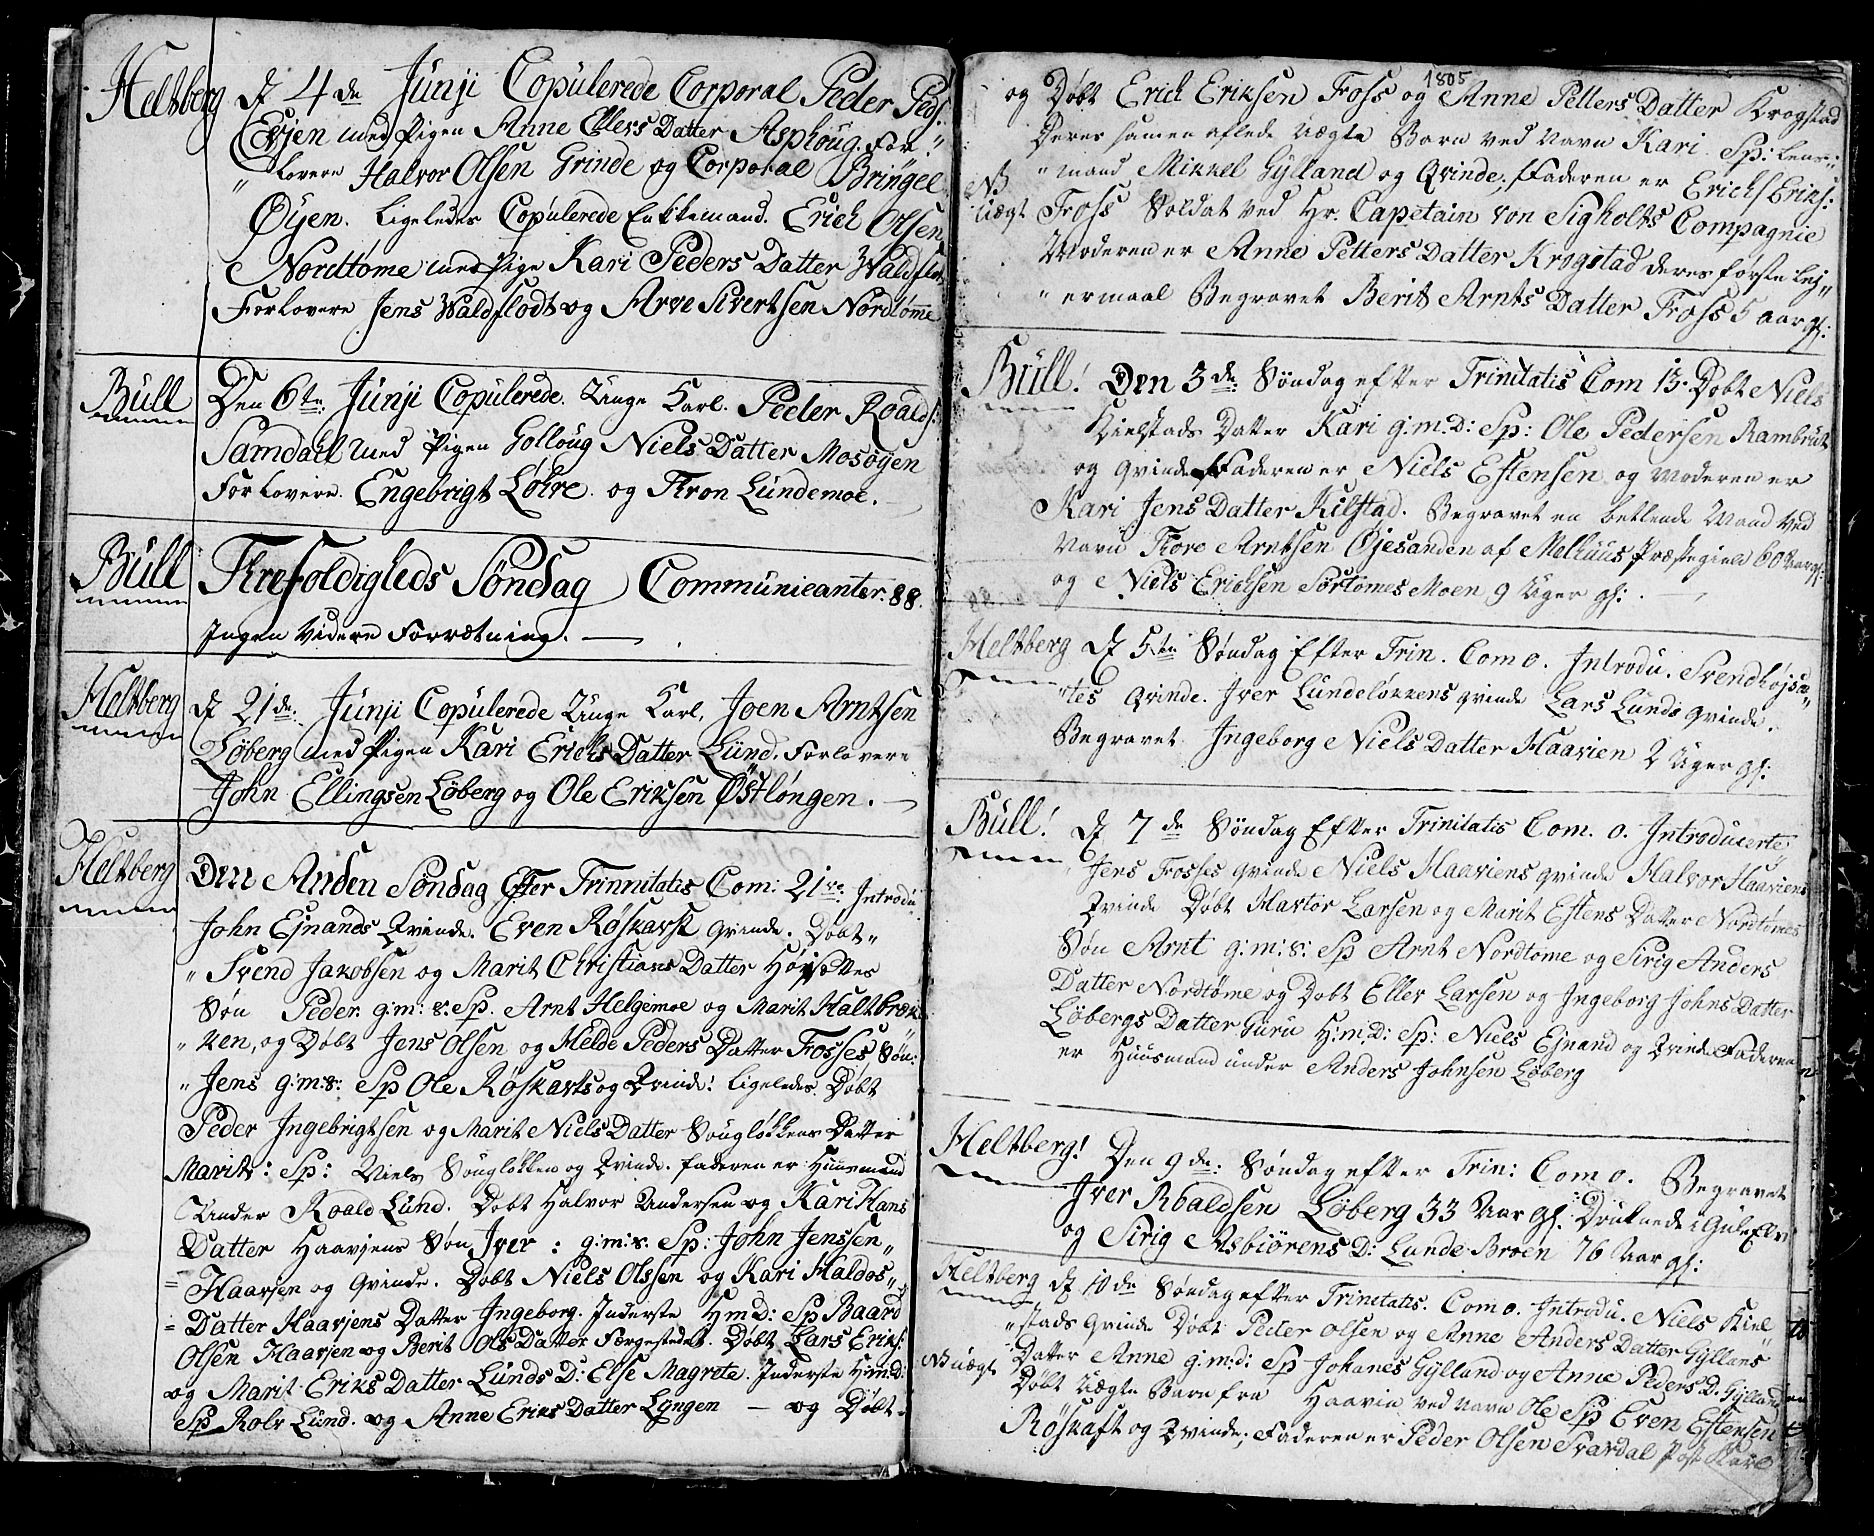 Heltberg d 4de Junji Copulerede Corporal Peder Peds:
Evjen med Pigen Anne Ellers Datter Asphoug. For¨
¨ lovere Halvor Olsen Grinde og Corporal Bringel
Øyen. Ligeledes Copulerede Enkkemand. Erich Olsen
Nordtøme med Pige Kari Peders Datter Waldflot
Forlovere Jens Waldflodt og Arve Sivertsen Nordtømme
Bull Den 6te Junji Copulerede Unge Karl. Peder Roalds:
Samdall med Pigen Golloug Niels Datter Mosøyen
Forlovere. Engebrigt Løhre. og Thron Lundemoe.
Bull Threfoldigheds Søndag Communicanter. 88.
Ingen Videre Forretning.
Heltberg d 21de Junji Copulerede Unge Karl, Joen Arntsen
Løberg med Pigen Kari Erichs Datter Lund. Forlovere
John Ellingsen Løberg og Ole Eriksen Østløngen.
Heltberg Den Anden Søndag Efter Trinnitatis Com: 21 Introdu
John Ejnands Qvinde. Even Røskavst Qvinde. Døbt¨
¨ Svend Jakobsen og Marit Christians Datter Høisettes
Søn Peder. g:m: s: Sp. Arnt Helgemoe og Marit Haltbræk
¨ ken, og Døbt Jens Olsen og Helde Peders Datter Fosses Søn:
¨ Jens g:m:s: Sp Ole Røskavts og Qvinde! Ligeledes Døbt
Peder Ingebrigtsen og Marit Niels Datter Sougløkkens Datter
Marit: Sp: Niels Sougløkken og Qvinde. Faderen er Huusmand
Under Roald Lund. Døbt Halvor Andersen og Kari Hans
Datter Haavjens Søn Iver: g:m:s. Sp: John Jenssen¨
= Haavjen og Qvinde. Døbt Niels Olssen og Kari Haldos¨
= Datter Haavjens Datter Ingeborg. Inderste H:m:D: Sp Baard
Olsen Haavjen og Berit Ols Datter Forgestedet. Døbt Lars Eriks:
og Marit Eriks Datter Lunds D: Else Magrete. Inderste H:m:d:
Sp Rolv Lund. og Anne Eriks Datter Lyngen — og Døbt.
1805
og Døbt Erich Eriksen Foss og Anne Petters Datter Krogstad
Deres samen aflede Uægte Barn ved Navn Kari Sp: Lens¨
¨ mand Mikkel Gylland og Qvinde; Faderen er Erichs Eriks:
NB Uægt Foss Soldat ved Hr. Capetain von Sigholts Compagnie
Moderen er Anne Petters Datter Krogstad deres første Lej¨
¨ ermaal Begravet Berit Arnts Datter Foss 5 aar gl:
Bull! Den 3de Søndag efter Trinitatis Com 13. Døbt Niels
Kielstads Datter Kari g:m:D: Sp: Ole Pedersen Rambrut
og Qvinde Faderen er Niels Estensen og Moderen er
Kari Jens Datter Kilstad. Begravet en betlende Mand ved
Navn Thore Arntsen Øjesanden af Melhuus Præstegield 60 Aar gl:
og Niels Erichsen Sørtømes Moen 9 Uger gl:
Heltberg d 5te Søndag Efter Trin. Com 0. Introdu. Svend Højset¨
¨ tes Qvinde. Iver Lundeløkkens Qvinde Lars Lunds Qvinde.
Begravet Ingeborg Niels Datter Haavien 2 Uger gl:
Bull! d 7de Søndag Efter Trinitatis Com. 0. Introducerte
Jens Fosses Qvinde Niels Haaviens Qvinde Halvor Haaviens
Qvinde Døbt Havtor Larsen og Marit Estens Datter Nordtømes
Søn Arnt g:m:s: Sp Arnt Nordtome og Sirig Anders
Datter Nordtøme og Døbt Eller Larsen og Ingeborg Johns Datter
Løbergs Datter Guru H:m:D: Sp: Niels Ejnand og Qvinde Faderen
er Huusmand under Anders Johnsen Løberg
Heltberg! Den 9de: Søndag efter Trin: Com 0. Begravet
Iver Roaldsen Løberg 33 Aar gl: Druknede i Gule Elv
og Sirig Asbiørens D: Lunde Broen 76 Aar gl:
Heltberg d 10de Søndag efter Trinitatis. Com 0. Introdu. Niels Kiel
¨ stads Qvinde Døbt Peder Olsen og Anne Anders Datter Gyllans
Datter Anne g:m:d: Sp Johanes Gylland og Anne Peders D. Gylland
NB uægt Døbt Uægte Barn fra Haavin ved Navn Ole Sp Even Estensen
Røskaft og Qvinde; Faderen er Peder Olsen Svardal